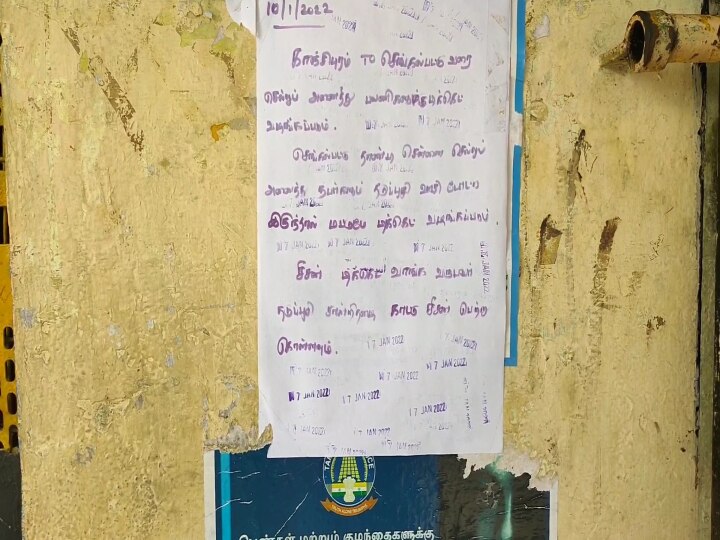 10/1/2022
காஞ்சிபுரம் TO செங்கல்பட்டு வரை
செல்லும் அனைத்து பயணிகளுக்கு டிக்கெட்
வழங்கப்படும்.
செங்கல்பட்டு தாண்டி சென்னை செல்லும்
அனைத்து நபர்களும் தடுப்பூசி ஊசி போட்டு
இருந்தால் மட்டுமே டிக்கெட் வழங்கப்படும்.
சீசன் டிக்கெட் வாங்க வருபவர்
தடுப்பூசி சான்றிதழை காட்டி சீசன் பெற்று
கொள்ளவும்.
17 JAN 2022
17 JAN 2022
17 JAN 2022
17 JAN 2022
17 JAN 2022
17 JAN 2022
பெண்கள் மற்றும் குழந்தைகளுக்கு